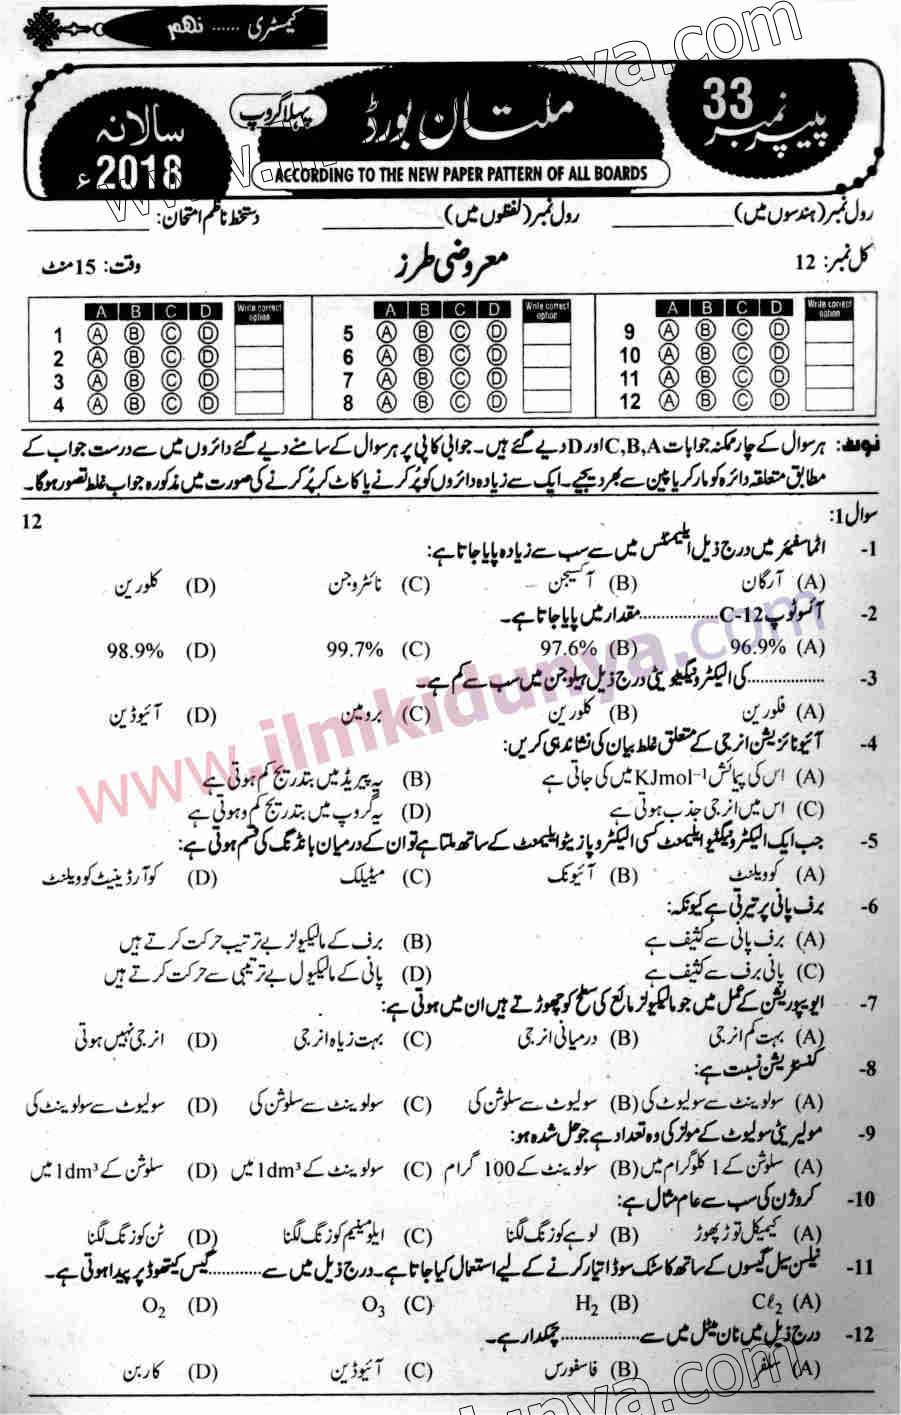 کیمسٹری ...... نہم
پیپر نمبر 33
ملتان بورڈ
پہلا گروپ
سالانہ 2018ء
ACCORDING TO THE NEW PAPER PATTERN OF ALL BOARDS
رول نمبر (ہندسوں میں) ________ رول نمبر (لفظوں میں) ________ دستخط ناظم امتحان: ________
کل نمبر: 12 معروضی طرز وقت: 15 منٹ
A B C D Write correct option A B C D Write correct option A B C D Write correct option
1 A B C D 5 A B C D 9 A B C D
2 A B C D 6 A B C D 10 A B C D
3 A B C D 7 A B C D 11 A B C D
4 A B C D 8 A B C D 12 A B C D
نوٹ: ہر سوال کے چار ممکنہ جوابات C,B,A اور D دیے گئے ہیں۔ جوابی کاپی پر ہر سوال کے سامنے دیے گئے دائروں میں سے درست جواب کے
مطابق متعلقہ دائرہ کو مارکر یا پین سے بھر دیجیے۔ ایک سے زیادہ دائروں کو پُر کرنے یا کاٹ کر پُر کرنے کی صورت میں مذکورہ جواب غلط تصور ہوگا۔
سوال 1: 12
1- اٹماسفیئر میں درج ذیل ایلیمنٹس میں سے سب سے زیادہ پایا جاتا ہے:
(A) آرگان (B) آکسیجن (C) نائٹروجن (D) کلورین
2- آئسوٹوپ C-12 .................. مقدار میں پایا جاتا ہے۔
(A) 96.9% (B) 97.6% (C) 99.7% (D) 98.9%
3- .................. کی الیکٹرونیگٹیویٹی درج ذیل ہیلوجن میں سب سے کم ہے۔
(A) فلورین (B) کلورین (C) برومین (D) آئیوڈین
4- آئیونائزیشن انرجی کے متعلق غلط بیان کی نشاندہی کریں:
(A) اس کی پیمائش KJmol⁻¹ میں کی جاتی ہے (B) یہ پیریڈ میں بتدریج کم ہوتی ہے
(C) اس میں انرجی جذب ہوتی ہے (D) یہ گروپ میں بتدریج کم ہوتی ہے
5- جب ایک الیکٹرونیگٹیو ایلیمنٹ کسی الیکٹروپازیٹو ایلیمنٹ کے ساتھ ملتا ہے تو ان کے درمیان بانڈنگ کی قسم ہوتی ہے:
(A) کوویلنٹ (B) آئیونک (C) میٹیلک (D) کوآرڈینیٹ کوویلنٹ
6- برف پانی پر تیرتی ہے کیونکہ:
(A) برف پانی سے کثیف ہے (B) برف کے مالیکیولز بے ترتیب حرکت کرتے ہیں
(C) پانی برف سے کثیف ہے (D) پانی کے مالیکیول بے ترتیبی سے حرکت کرتے ہیں
7- ایویپوریشن کے عمل میں جو مالیکیولز مائع کی سطح کو چھوڑتے ہیں ان میں ہوتی ہے:
(A) بہت کم انرجی (B) درمیانی انرجی (C) بہت زیاہ انرجی (D) انرجی نہیں ہوتی
8- کنسنٹریشن نسبت ہے:
(A) سولوینٹ سے سولیوٹ کی (B) سولیوٹ سے سلوشن کی (C) سولوینٹ سے سلوشن کی (D) سولیوٹ سے سولوینٹ کی
9- مولیریٹی سولیوٹ کے مولز کی وہ تعداد ہے جو حل شدہ ہو:
(A) سلوشن کے 1 کلوگرام میں (B) سولوینٹ کے 100 گرام (C) سولوینٹ کے 1dm³ میں (D) سلوشن کے 1dm³ میں
10- کروژن کی سب سے عام مثال ہے:
(A) کیمیکل توڑ پھوڑ (B) لوہے کو زنگ لگنا (C) ایلومینیم کو زنگ لگنا (D) ٹن کو زنگ لگنا
11- نیلسن سیل گیسوں کے ساتھ کاسٹک سوڈا تیار کرنے کے لیے استعمال کیا جاتا ہے۔ درج ذیل میں سے ............ گیس کیتھوڈ پر پیدا ہوتی ہے۔
(A) Cℓ₂ (B) H₂ (C) O₃ (D) O₂
12- درج ذیل میں نان میٹل میں سے .................. چمکدار ہے۔
(A) سلفر (B) فاسفورس (C) آئیوڈین (D) کاربن
www.ilmkidunya.com